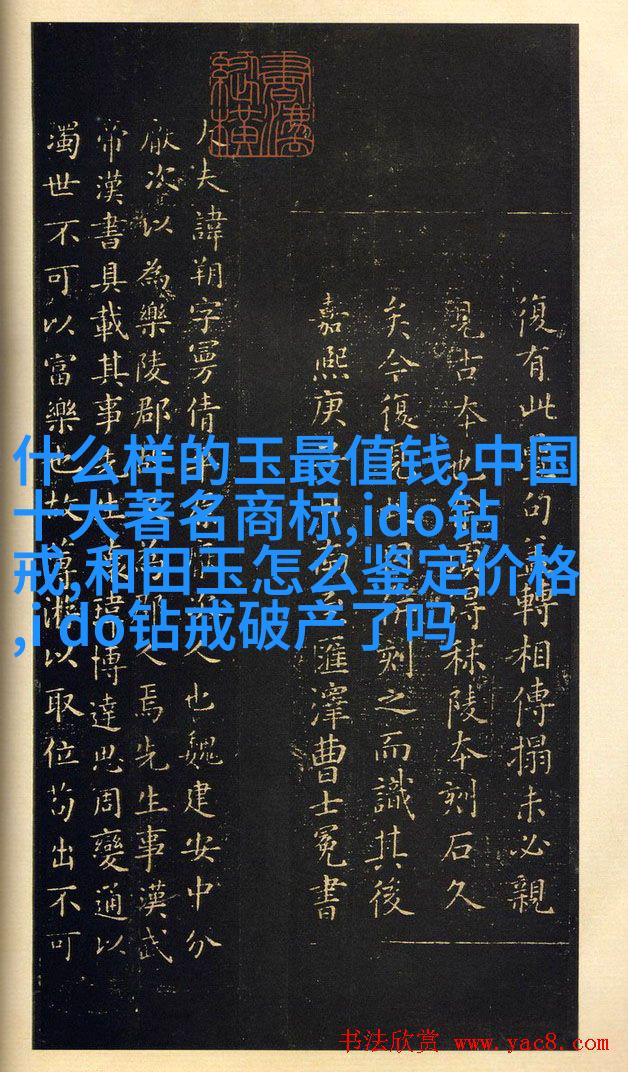 什么样的玉最值钱,中国
十大著名商标,ido钻
戒,和田玉怎么鉴定价格
,i do钻戒破产了吗
復有此 句 轉相傳搨未必親
見古本也 得秣陵本刻石久
矣今復見 刻之而識其後
嘉熙庚 匯澤曹士冕書
大夫諱朔字曼倩 人也魏建安中分
厭次以為樂陵郡 人焉先生事漢武
帝漢書具載其事先生 瑋博達思周變通以
濁世不可以富樂也故薄游以取位苟出不可
书法欣赏 www.yac8.com